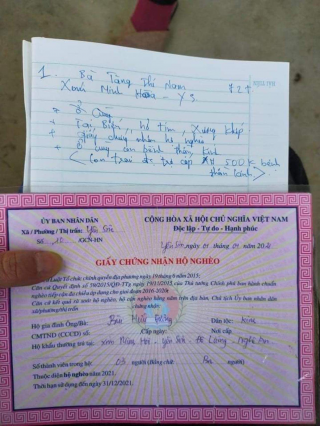 1. Bà Tăng Thị Nam 72t
Xóm Minh Hòa - YS.
* Ở Cùng
+ Tai Biến, hở tim, xương khớp
+ Giấy chứng nhận hộ nghèo
+ Ở cùng con bệnh thần kinh
(Con trai đc trợ cấp 500K bệnh
thần kinh)
ỦY BAN NHÂN DÂN
Xã / Phường / Thị trấn: Yên Sơn
Số: 10 /GCN-HN
CỘNG HÒA XÃ HỘI CHỦ NGHĨA VIỆT NAM
Độc lập - Tự do - Hạnh phúc
Yên Sơn, ngày 01 tháng 01 năm
GIẤY CHỨNG NHẬN HỘ NGHÈO
Luật Tổ chức chính quyền địa phương ngày 19 tháng 6 năm 2015;
Căn cứ Quyết định số 59/2015/QĐ-TTg ngày 19/11/2015 của Thủ tướng Chính phủ ban hành chuẩn
nghèo tiếp cận đa chiều áp dụng cho giai đoạn 2016-2020;
Căn cứ kết quả rà soát hộ nghèo, hộ cận nghèo hằng năm trên địa bàn, Chủ tịch Ủy ban nhân dân
xã/phường/thị trấn
chứng nhận:
Hộ gia đình Ông/Bà: Bùi Dân tộc: Kinh
CMTND/CCCD số: Cấp ngày: Nơi cấp
Hộ khẩu thường trú tại: xóm Minh Hòa - Yên Sơn - Đô Lương - Nghệ An
Số thành viên trong hộ: 03 người (Bằng chữ: Ba người)
Thuộc diện hộ nghèo năm 2021.
Thời hạn sử dụng đến ngày 31/12/2021.